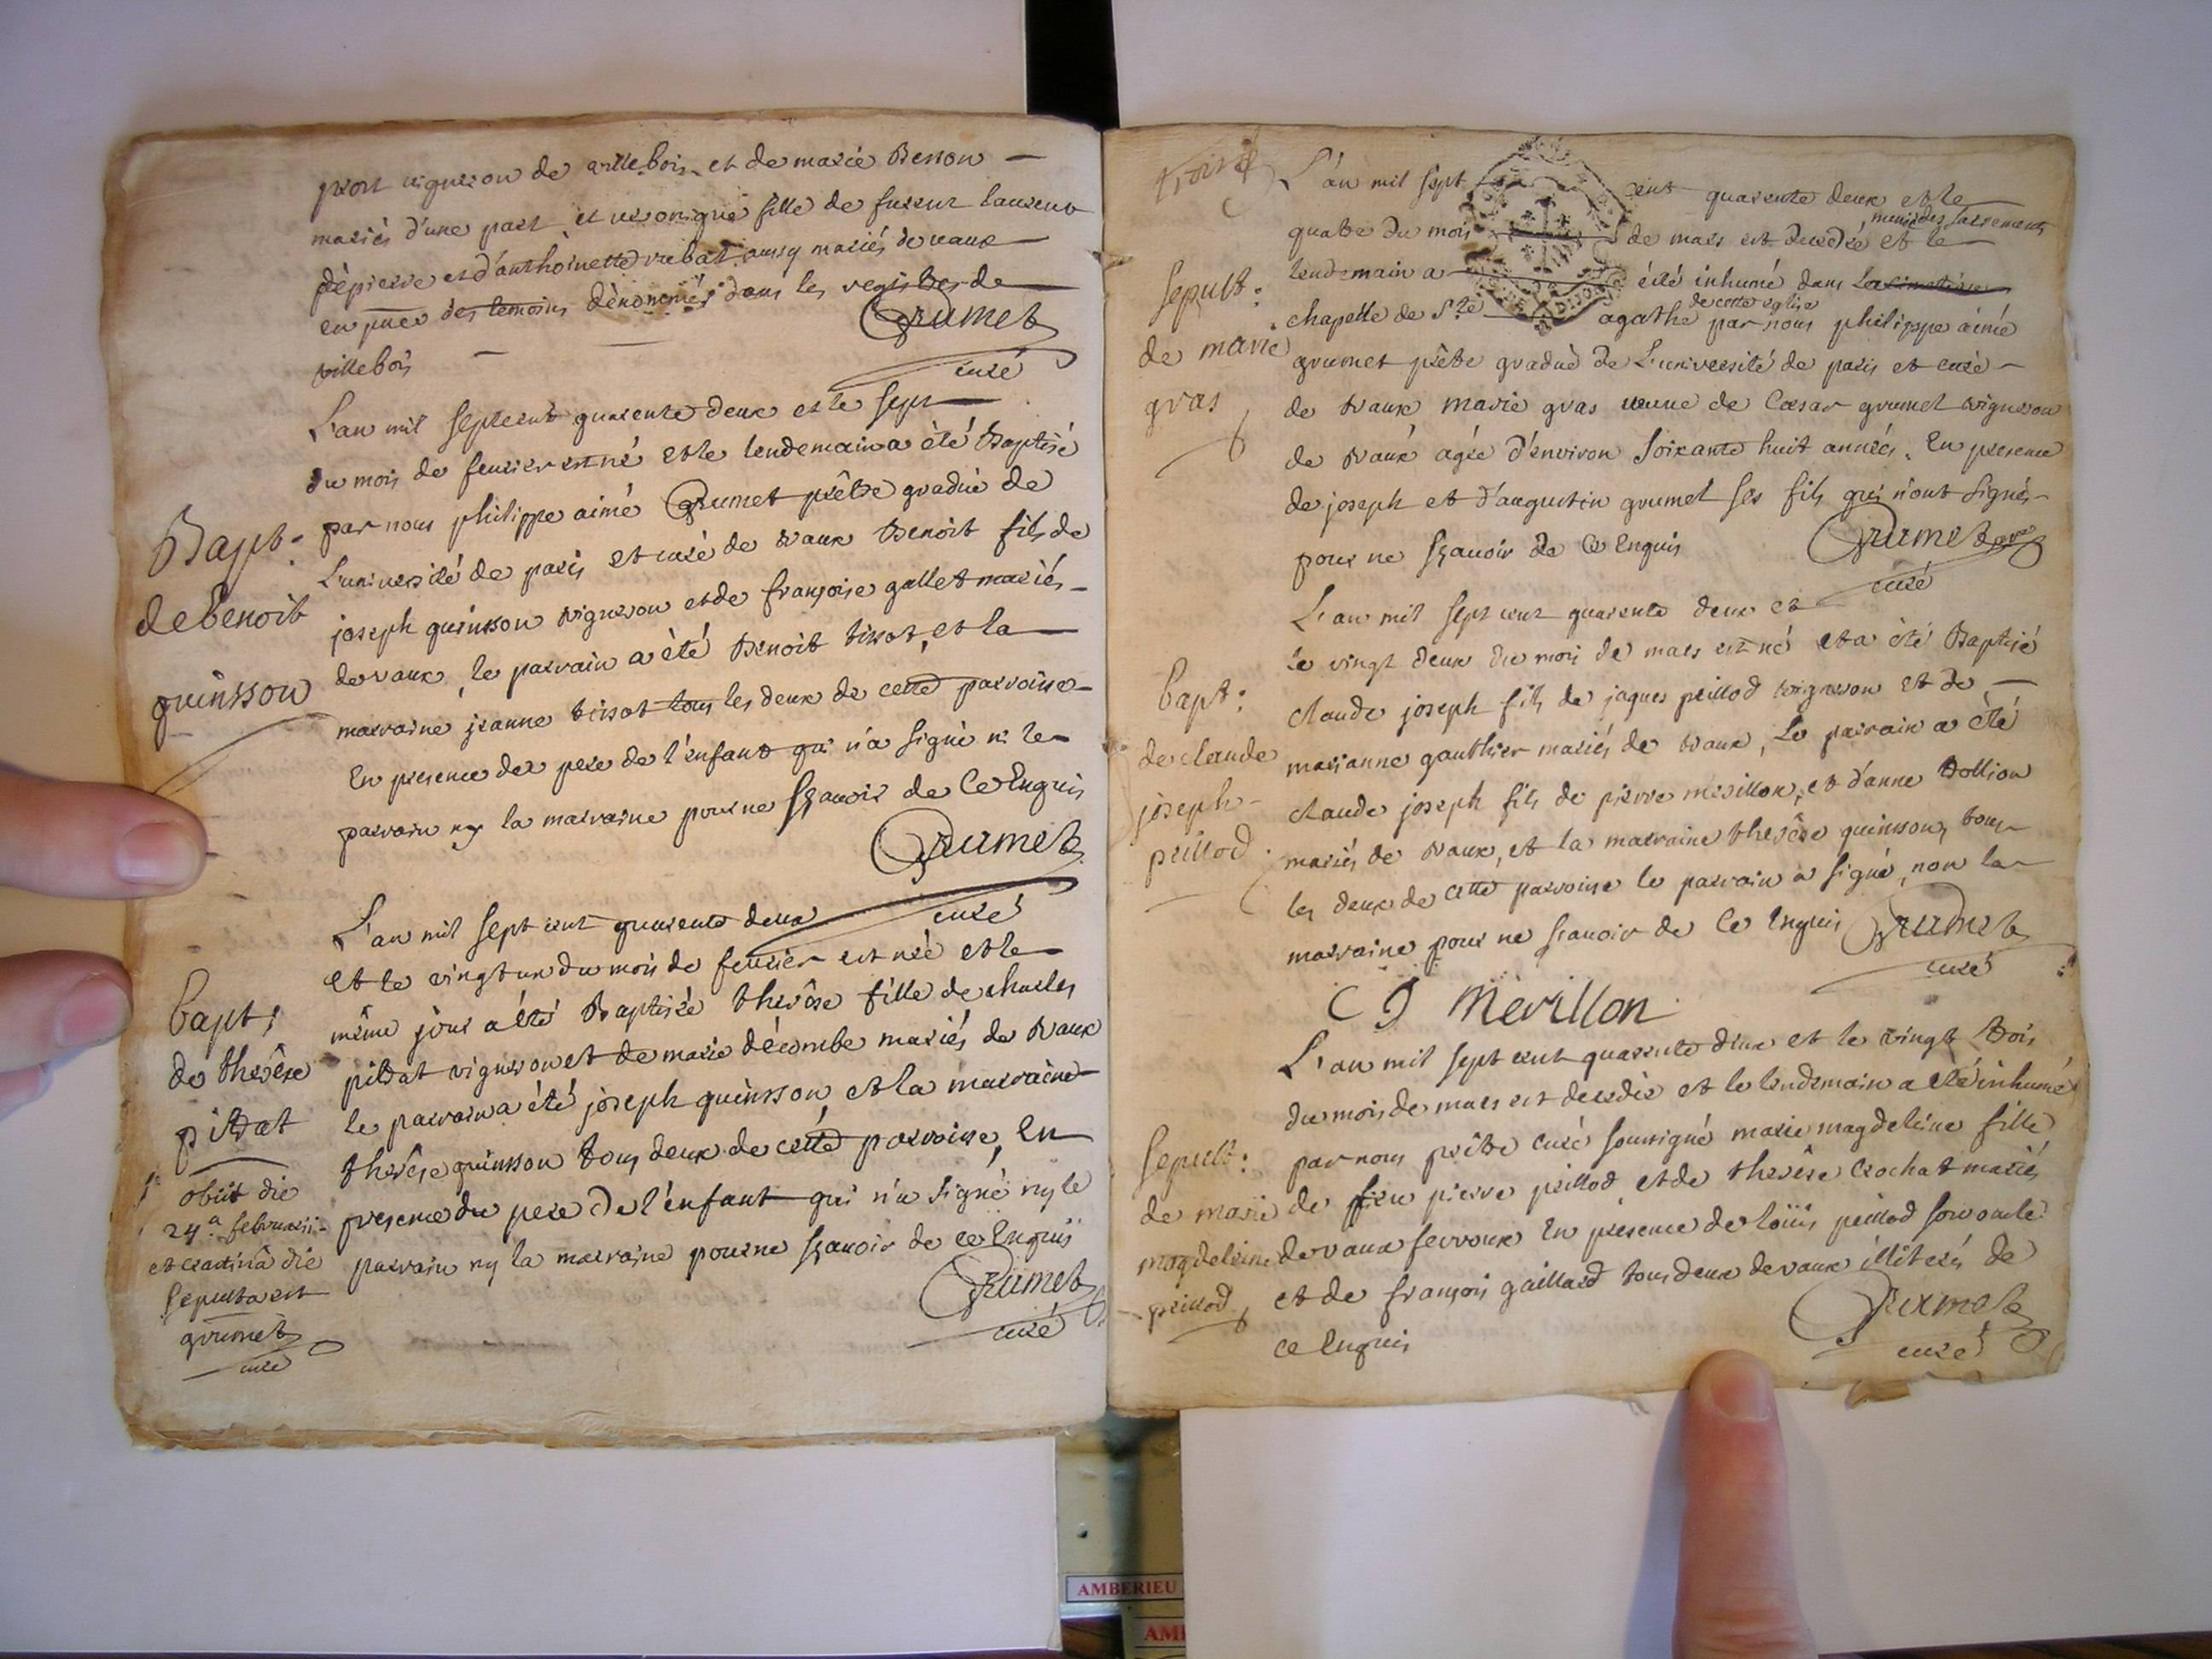 vigneron de villebois et de marie Besson
mariés d'une part, et veronique fille de laurent
depierre et d'anthoinette aussy mariés de vaux
en pnce des temoins dénommés dans les registres de
villebois
Grumet
curé
L'an mil sept cent quarente deux et le sept
du mois de feuvrier est né et le lendemain a été Baptisé
par nous philippe aimé Grumet prêtre gradué de
L'université de paris et curé de vaux Benoit fils de
joseph quinsson vigneron et de françoise gallet mariés
de vaux, le parrain a été Benoit tissot, et la
marraine jeanne tissot tous les deux de cette parroisse
En presence du pere de l'enfant qui n'a signé ni le
parrain ny la marraine pour ne sçavoir de Ce Enquis
Grumet
curé
Bapt:
de Benoit
quinsson
L'an mil sept cent quarente deux
et le vingt un du mois de feuvrier est née et le
même jour a été Baptisée therêse fille de charles
pitrat vigneron et de marie décombe mariés de vaux
le parrain a été joseph quinsson et la marraine
therêse quinsson tous deux de cette parroisse, En
presence du pere de l'enfant qui n'a signé ny le
parrain ny la marraine pour ne sçavoir de ce Enquis
Grumet
curé
bapt:
de therêse
pitrat
obiit die
24a februarii
et crastinâ die
sepulta est
grumet
curé
L'an mil sept cent quarente deux et le
quatre du mois de mars est decedée munie des sacrements et le
lendemain a été inhumé dans La cimetiere
chapelle de Ste agathe de cette eglise par nous philippe aimé
grumet prêtre gradué de L'université de paris et curé
de vaux marie gras veuve de Cæsar grumet vigneron
de vaux agée d'environ soixante huit années. En presence
de joseph et d'augustin grumet ses fils qui n'ont signés
pour ne sçavoir de Ce Enquis
Grumet
curé
sepult:
de marie
gras
L'an mil sept cent quarente deux et
le vingt deux du mois de mars est né et a été Baptisé
claude joseph fils de jaques peillod vigneron et de
marianne gauthier mariés de vaux, Le parrain a été
claude joseph fils de pierre mérillon, et d'anne Bollion
mariés de vaux, et la marraine therêse quinsson, tous
les deux de cette parroisse le parrain a signé, non la
marraine pour ne scavoir de Ce Enquis
Grumet
curé
C J Mérillon
bapt:
de claude
joseph
peillod
L'an mil sept cent quarente deux et le vingt trois
du mois de mars est decedée et le lendemain a été inhumé
par nous prêtre curé soussigné marie magdeleine fille
de feu pierre peillod et de therêse Crochat mariés
de vaux fevroux En presence de loüis peillod son oncle
et de françois gaillard tous deux de vaux illiterés de
ce Enquis
Grumet
curé
sepult:
de marie
magdeleine
peillod
AMBERIEU